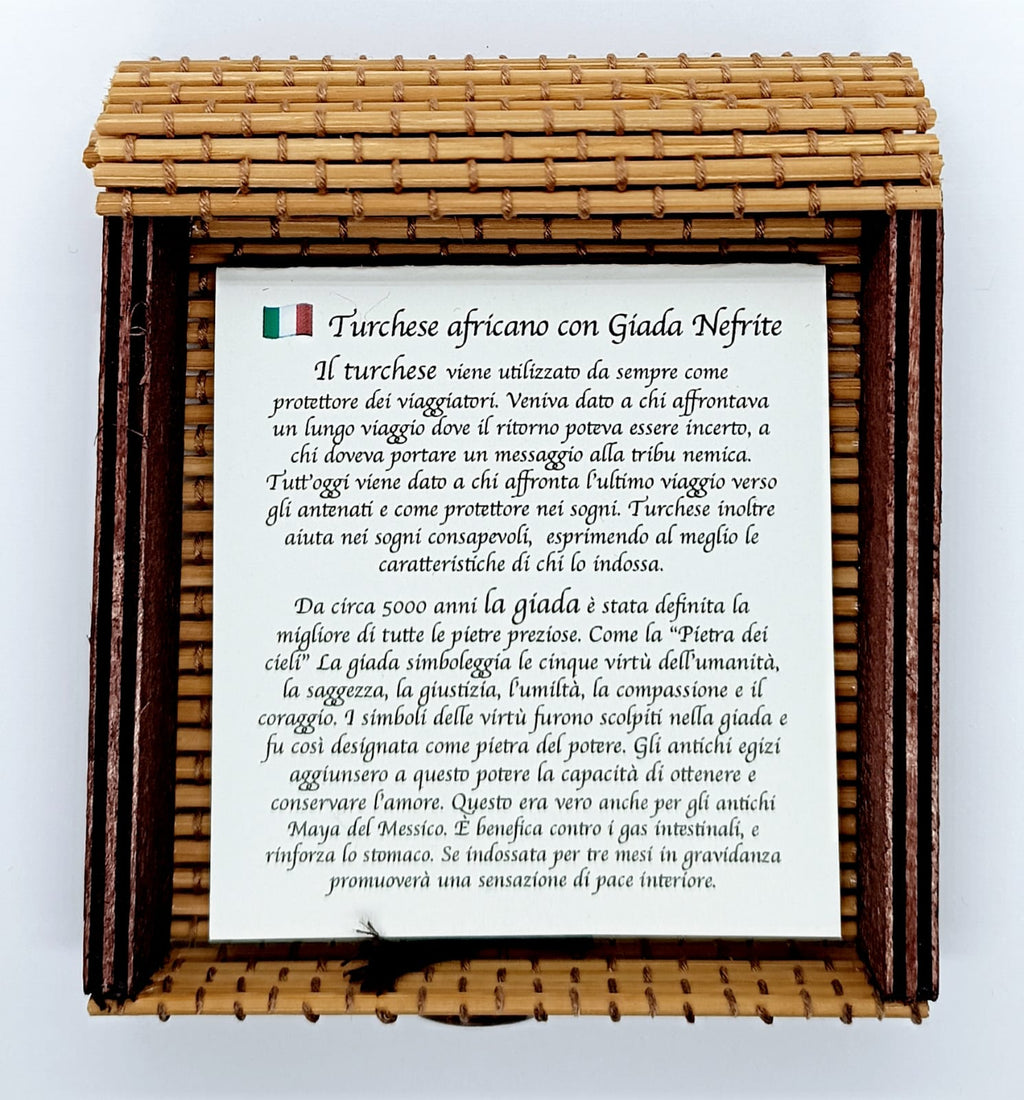 Turchese africano con Giada Nefrite
Il turchese viene utilizzato da sempre come
protettore dei viaggiatori. Veniva dato a chi affrontava
un lungo viaggio dove il ritorno poteva essere incerto, a
chi doveva portare un messaggio alla tribu nemica.
Tutt'oggi viene dato a chi affronta l'ultimo viaggio verso
gli antenati e come protettore nei sogni. Turchese inoltre
aiuta nei sogni consapevoli, esprimendo al meglio le
caratteristiche di chi lo indossa.
Da circa 5000 anni la giada è stata definita la
migliore di tutte le pietre preziose. Come la "Pietra dei
cieli" La giada simboleggia le cinque virtù dell'umanità,
la saggezza, la giustizia, l'umiltà, la compassione e il
coraggio. I simboli delle virtù furono scolpiti nella giada e
fu così designata come pietra del potere. Gli antichi egizi
aggiunsero a questo potere la capacità di ottenere e
conservare l'amore. Questo era vero anche per gli antichi
Maya del Messico. È benefica contro i gas intestinali, e
rinforza lo stomaco. Se indossata per tre mesi in gravidanza
promuoverà una sensazione di pace interiore.